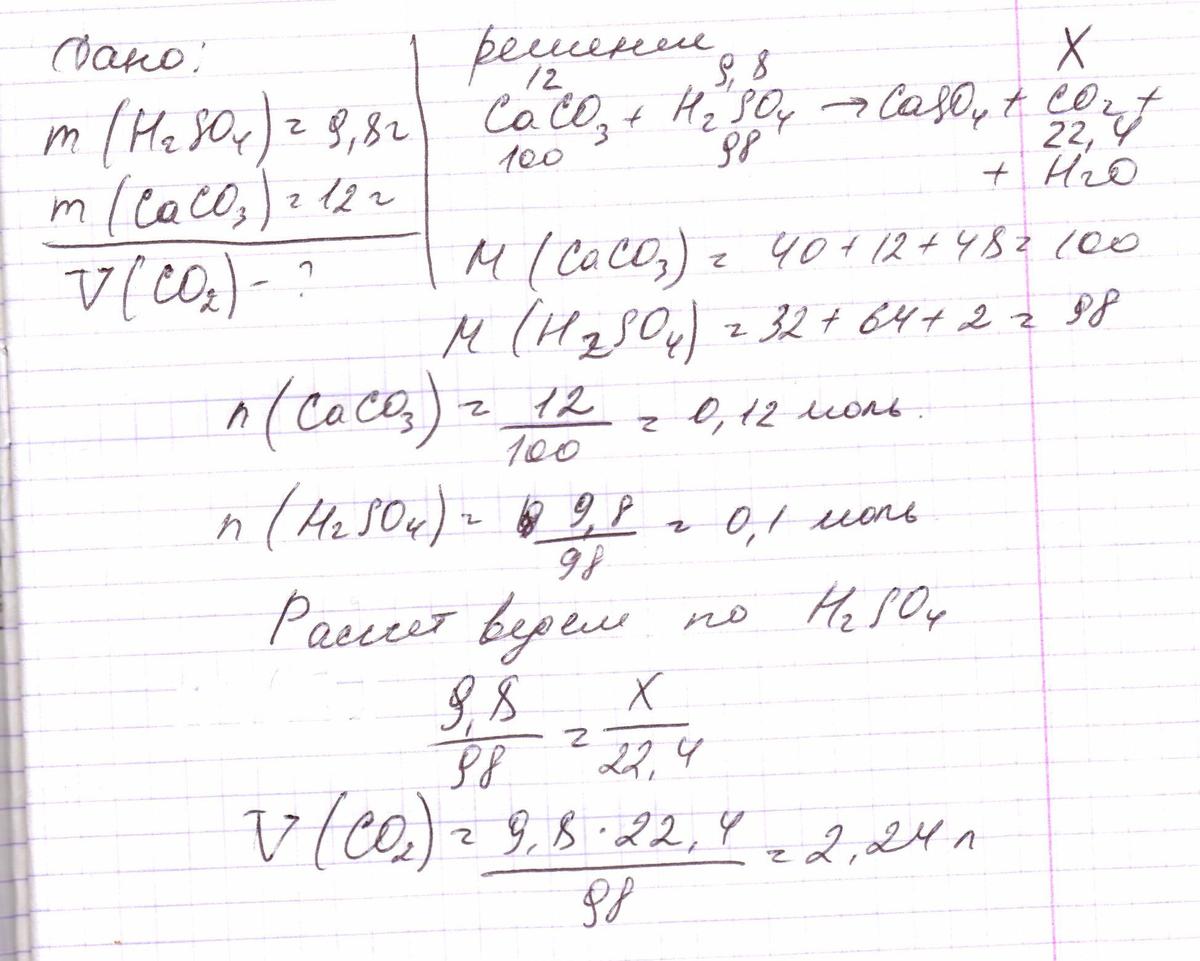 Дано:
m (H₂SO₄) = 9,8г
m (CaCO₃) = 12г
V(CO₂) - ?
решение
12 9,8 X
CaCO₃ + H₂SO₄ → CaSO₄ + CO₂ +
100 98 22,4
+ H₂O
M (CaCO₃) = 40 + 12 + 48 = 100
M (H₂SO₄) = 32 + 64 + 2 = 98
n (CaCO₃) = 12/100 = 0,12 моль.
n (H₂SO₄) = 9,8/98 = 0,1 моль
Расчет ведем по H₂SO₄
9,8/98 = X/22,4
V (CO₂) = 9,8 · 22,4/98 = 2,24 л